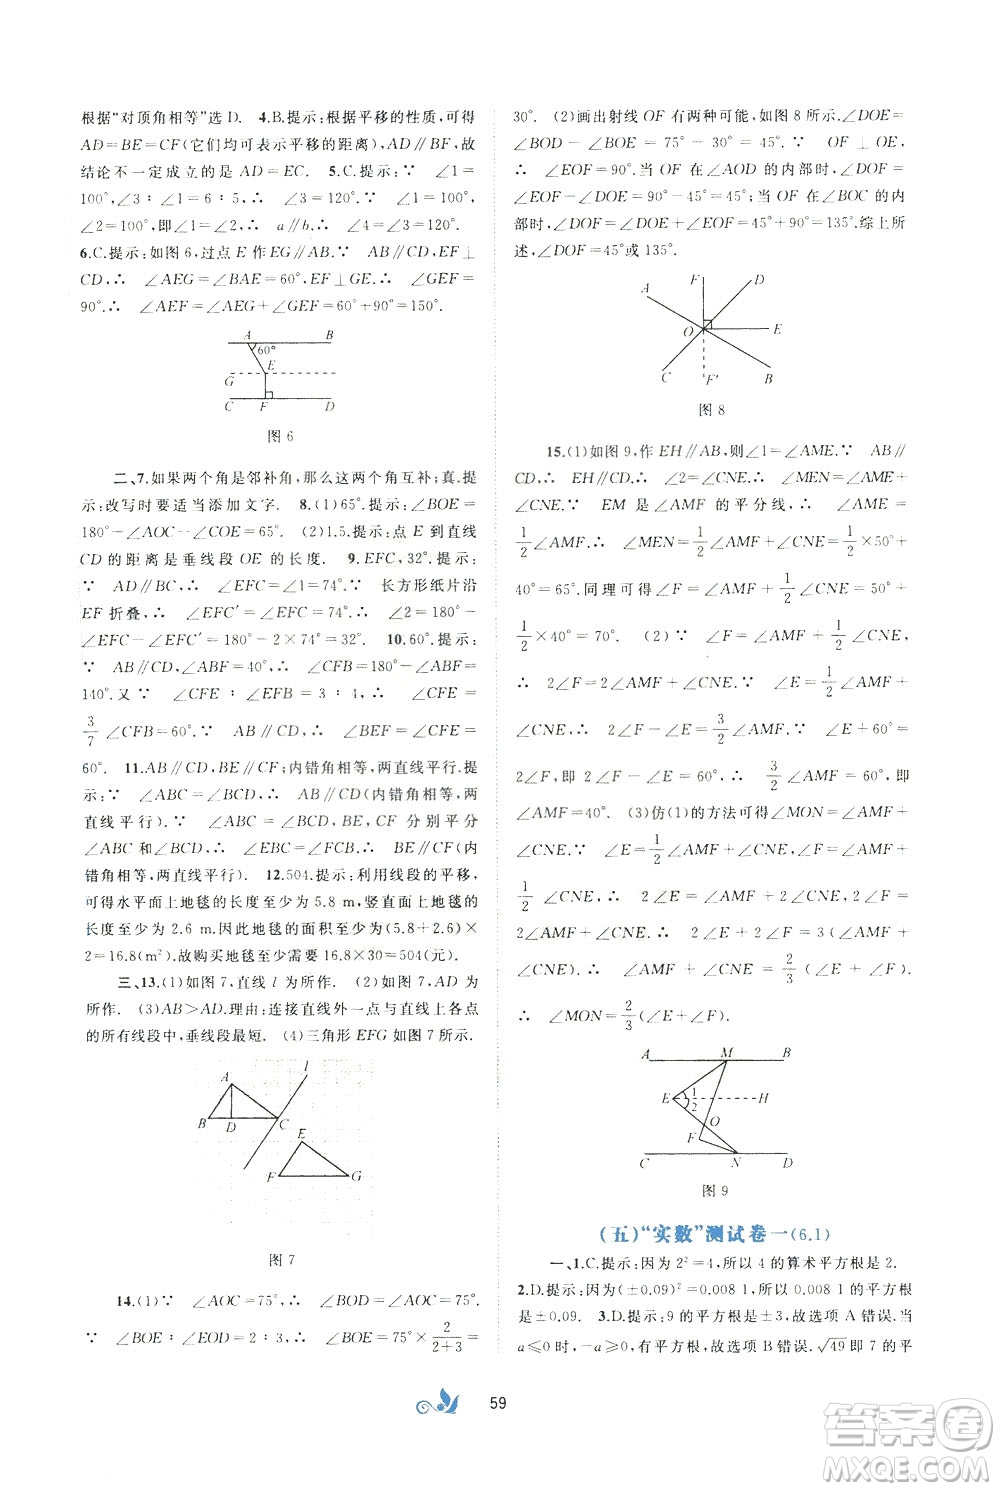 根据“对顶角相等”选 D. 4.B.提示:根据平移的性质,可得
AD=BE=CF(它们均可表示平移的距离),AD∥BF,故
结论不一定成立的是 AD=EC. 5.C.提示:∵ ∠1=
100°,∠3∶∠1=6∶5,∴ ∠3=120°.∵ ∠1=100°,
∠2=100°,即∠1=∠2,∴ a∥b,∴ ∠4=∠3=120°.
6.C.提示:如图 6,过点 E 作 EG∥AB.∵ AB∥CD,EF⊥
CD,∴ ∠AEG=∠BAE=60°,EF⊥GE.∴ ∠GEF=
90°.∴ ∠AEF=∠AEG+∠GEF=60°+90°=150°.
A B
60°
E
G
C F D
图 6
二、7.如果两个角是邻补角,那么这两个角互补;真.提
示:改写时要适当添加文字. 8.(1)65°.提示:∠BOE=
180°-∠AOC-∠COE=65°. (2)1.5.提示:点 E 到直线
CD 的距离是垂线段 OE 的长度. 9.EFC,32°.提示:
∵ AD∥BC,∴ ∠EFC=∠1=74°.∵ 长方形纸片沿
EF 折叠,∴ ∠EFC′=∠EFC=74°,∴ ∠2=180°-
∠EFC-∠EFC′=180°-2×74°=32°. 10.60°.提示:
∵ AB∥CD,∠ABF=40°,∴ ∠CFB=180°-∠ABF=
140°.又∵ ∠CFE∶∠EFB=3∶4,∴ ∠CFE=
3/7 ∠CFB=60°.∵ AB∥CD,∴ ∠BEF=∠CFE=
60°. 11.AB∥CD,BE∥CF;内错角相等,两直线平行.提
示:∵ ∠ABC=∠BCD,∴ AB∥CD(内错角相等,两
直线平行).∵ ∠ABC=∠BCD,BE,CF 分别平分
∠ABC 和∠BCD,∴ ∠EBC=∠FCB.∴ BE∥CF(内
错角相等,两直线平行). 12.504.提示:利用线段的平移,
可得水平面上地毯的长度至少是 5.8 m,竖直面上地毯的
长度至少是 2.6 m.因此地毯的面积至少是(5.8+2.6)×
2=16.8(m²),故购买地毯至少需要 16.8×30=504(元).
三、13.(1)如图 7,直线 l 为所作. (2)如图 7,AD 为
所作. (3)AB>AD.理由:连接直线外一点与直线上各点
的所有线段中,垂线段最短. (4)三角形 EFG 如图 7 所示.
A l
B D C
E
F G
图 7
14.(1)∵ ∠AOC=75°,∴ ∠BOD=∠AOC=75°.
∵ ∠BOE∶∠EOD=2∶3,∴ ∠BOE=75°×2/(2+3)=
30°. (2)画出射线 OF 有两种可能,如图 8 所示.∠DOE=
∠BOD-∠BOE=75°-30°=45°.∵ OF⊥OE,∴
∠EOF=90°.∴ 当 OF 在∠AOD 的内部时,∠DOF=
∠EOF-∠DOE=90°-45°=45°;当 OF 在∠BOC 的内
部时,∠DOF=∠DOE+∠EOF=45°+90°=135°.综上所
述,∠DOF=45°或135°.
A F D
O E
C F′ B
图 8
15.(1)如图 9,作 EH∥AB,则∠1=∠AME.∵ AB∥
CD,∴ EH∥CD,∴ ∠2=∠CNE.∴ ∠MEN=∠AME+
∠CNE.∵ EM 是∠AMF 的平分线,∴ ∠AME=
1/2 ∠AMF.∴ ∠MEN=1/2 ∠AMF+∠CNE=1/2×50°+
40°=65°.同理可得,∠F=∠AMF+1/2 ∠CNE=50°+
1/2×40°=70°. (2)∵ ∠F=∠AMF+1/2 ∠CNE,
∴ 2∠F=2∠AMF+∠CNE.∵ ∠E=1/2 ∠AMF+
∠CNE,∴ 2∠F-∠E=3/2 ∠AMF.∵ ∠E+60°=
2∠F,即 2∠F-∠E=60°,∴ 3/2 ∠AMF=60°,∴
∠AMF=40°. (3)仿(1)的方法可得∠MON=∠AMF+
∠CNE.∵ ∠E=1/2 ∠AMF+∠CNE,∠F=∠AMF+
1/2 ∠CNE,∴ 2∠E=∠AMF+2∠CNE,2∠F=
2∠AMF+∠CNE,∴ 2∠E+2∠F=3(∠AMF+
∠CNE),∴ ∠AMF+∠CNE=2/3(∠E+∠F).
∴ ∠MON=2/3(∠E+∠F).
A M B
E 1 2 H
O
F
C N D
图 9
(五)“实数”测试卷一(6.1)
一、1.C.提示:因为 2²=4,所以 4 的算术平方根是 2.
2.D.提示:因为(±0.09)²=0.008 1,所以 0.008 1 的平方根
是±0.09. 3.D.提示:9 的平方根是±3,故选项 A 错误.当
a≤0 时,-a≥0,有平方根,故选项 B 错误.√49即 7 的平
59
答案圈
MXQE.COM